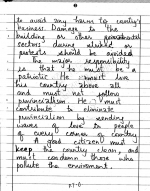 to avoid any harm to country
business. Damage to the
building or other
sectors during strikes or
protests should be avoided.
The major responsibility
is that to must be a
patriotic. He must love
his country above all
and must not follow
provincialism. He must
contribute to eliminate
provincialism by sending
waves of love to people
of every corner of country
A good citizen must
keep his country clean and
must condemn those who
pollute the environment.
P.T.O